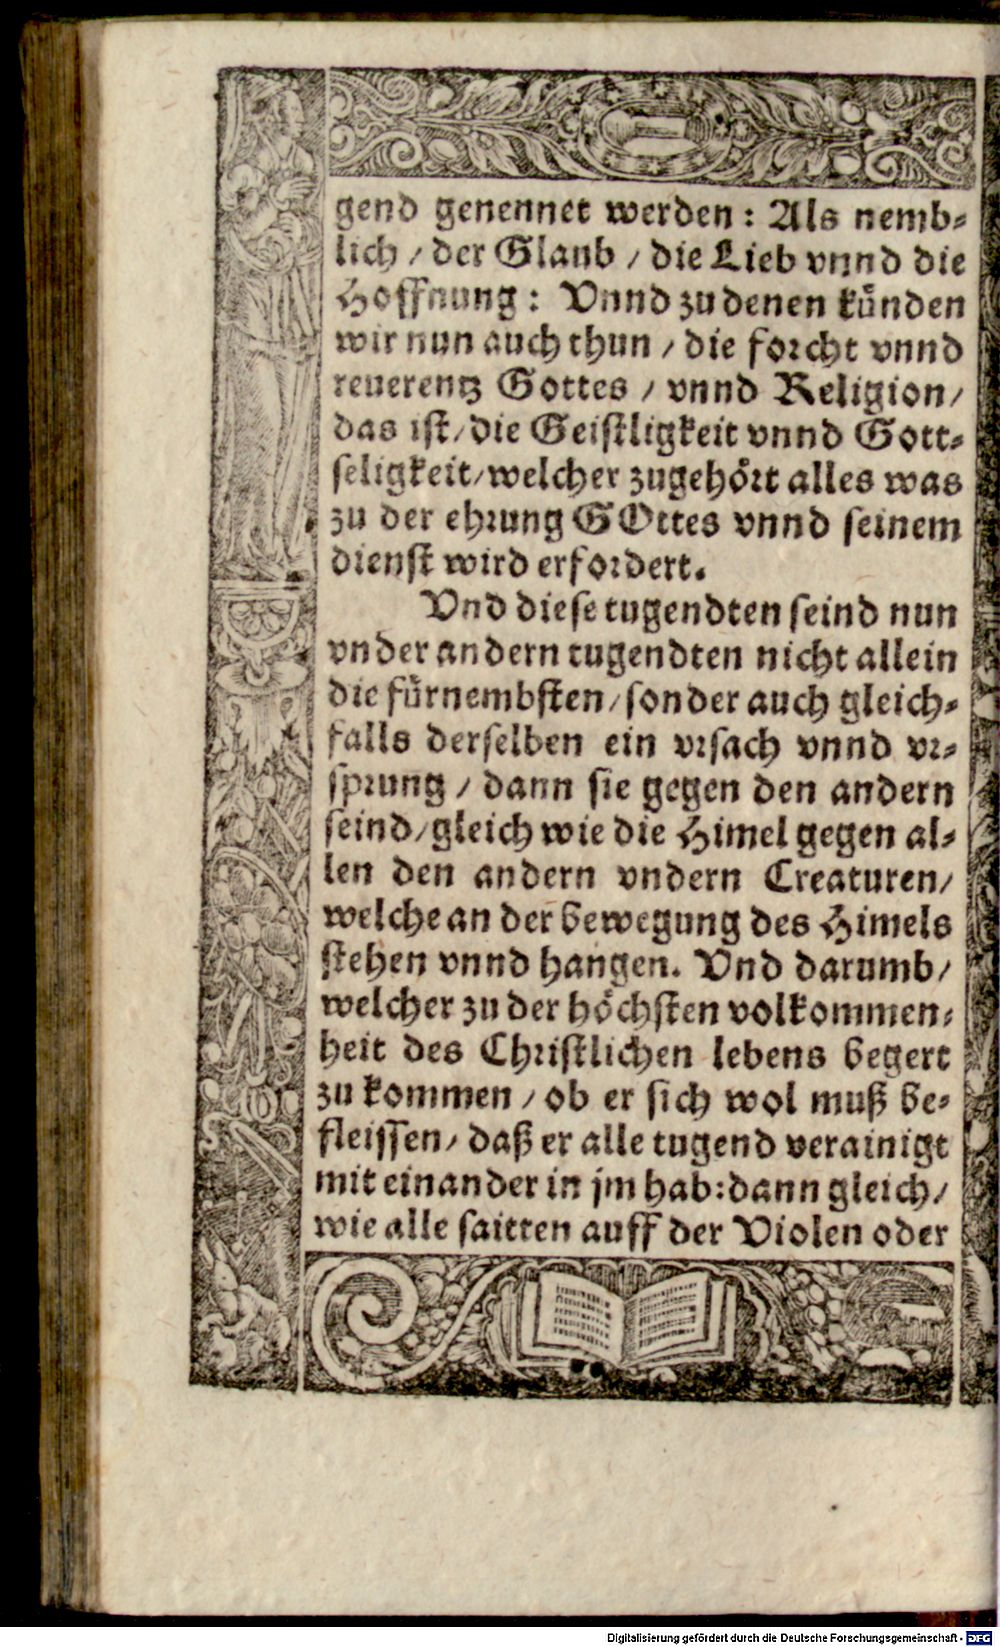 gend genennet werden: Als nemb-
lich / der Glaub / die Lieb vnnd die
Hoffnung: Vnnd zu denen künden
wir nun auch thun / die forcht vnnd
reuerentz Gottes / vnnd Religion/
das ist/die Geistligkeit vnnd Gott-
seligkeit/welcher zugehört alles was
zu der ehrung GOttes vnnd seinem
dienst wird erfordert.
Vnd diese tugendten seind nun
vnder andern tugendten nicht allein
die fürnembsten/sonder auch gleich-
falls derselben ein vrsach vnnd vr-
sprung / dann sie gegen den andern
seind/gleich wie die Himel gegen al-
len den andern vndern Creaturen/
welche an der bewegung des Himels
stehen vnnd hangen. Vnd darumb/
welcher zu der höchsten volkommen-
heit des Christlichen lebens begert
zu kommen / ob er sich wol muß be-
fleissen/ daß er alle tugend verainigt
mit einander in jm hab:dann gleich/
wie alle saitten auff der Violen oder
Digitalisierung gefördert durch die Deutsche Forschungsgemeinschaft - DFG